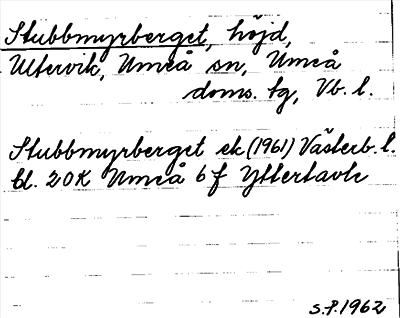 Stubbmyrberget, höjd,
Ultervik, Umeå sn, Umeå
doms. tg, Vb. l.
Stubbmyrberget ek (1961) Västerb. l.
bl. 20K Umeå 6f Yttertavle
S.P. 1962